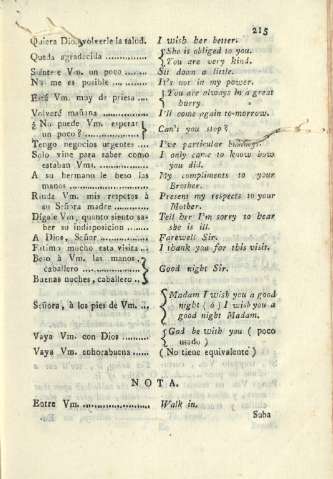 215
Quiera Dios volverle la salud. I wish her better.
Queda agradecida .............. She is obliged to you.
You are very kind.
Siéntese Vm. un poco ....... Sit down a little.
No me es posible .............. It's not in my power.
Está Vm. muy de priesa .... You are always in a great
hurry.
Volveré mañana ............... I'll come again to-morrow.
¿ No puede Vm. esperar
un poco ? .................... Can't you stop ?
Tengo negocios urgentes .... I've particular
Solo vine para saber como I only came to know how
estaban Vms. ................. you did.
A su hermano le beso las My compliments to your
manos ........................ Brother.
Rinda Vm. mis respetos á Present my respects to your
su Señora madre ............ Mother.
Dígale Vm. quanto siento sa- Tell her I'm sorry to hear
ber su indisposicion ........ she is ill.
A Dios, Señor ................. Farewell Sir.
Estimo mucho esta visita ... I thank you for this visit.
Beso á Vm. las manos,
caballero ..................... Good night Sir.
Buenas noches, caballero ..
Madam I wish you a good
Señora, á los pies de Vm. ... night ( ó ) I wish you a
good night Madam.
Vaya Vm. con Dios ........... God be with you ( poco
usado )
Vaya Vm. enhorabuena ...... ( No tiene equivalente )
NOTA.
Entre Vm. ..................... Walk in.
Suba